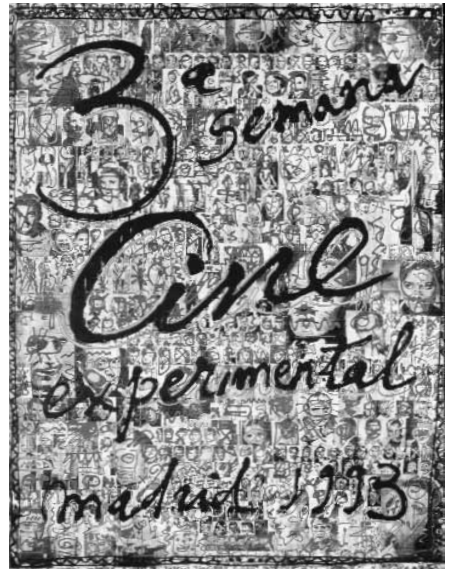 3ª semana
Cine
experimental
madrid 1993